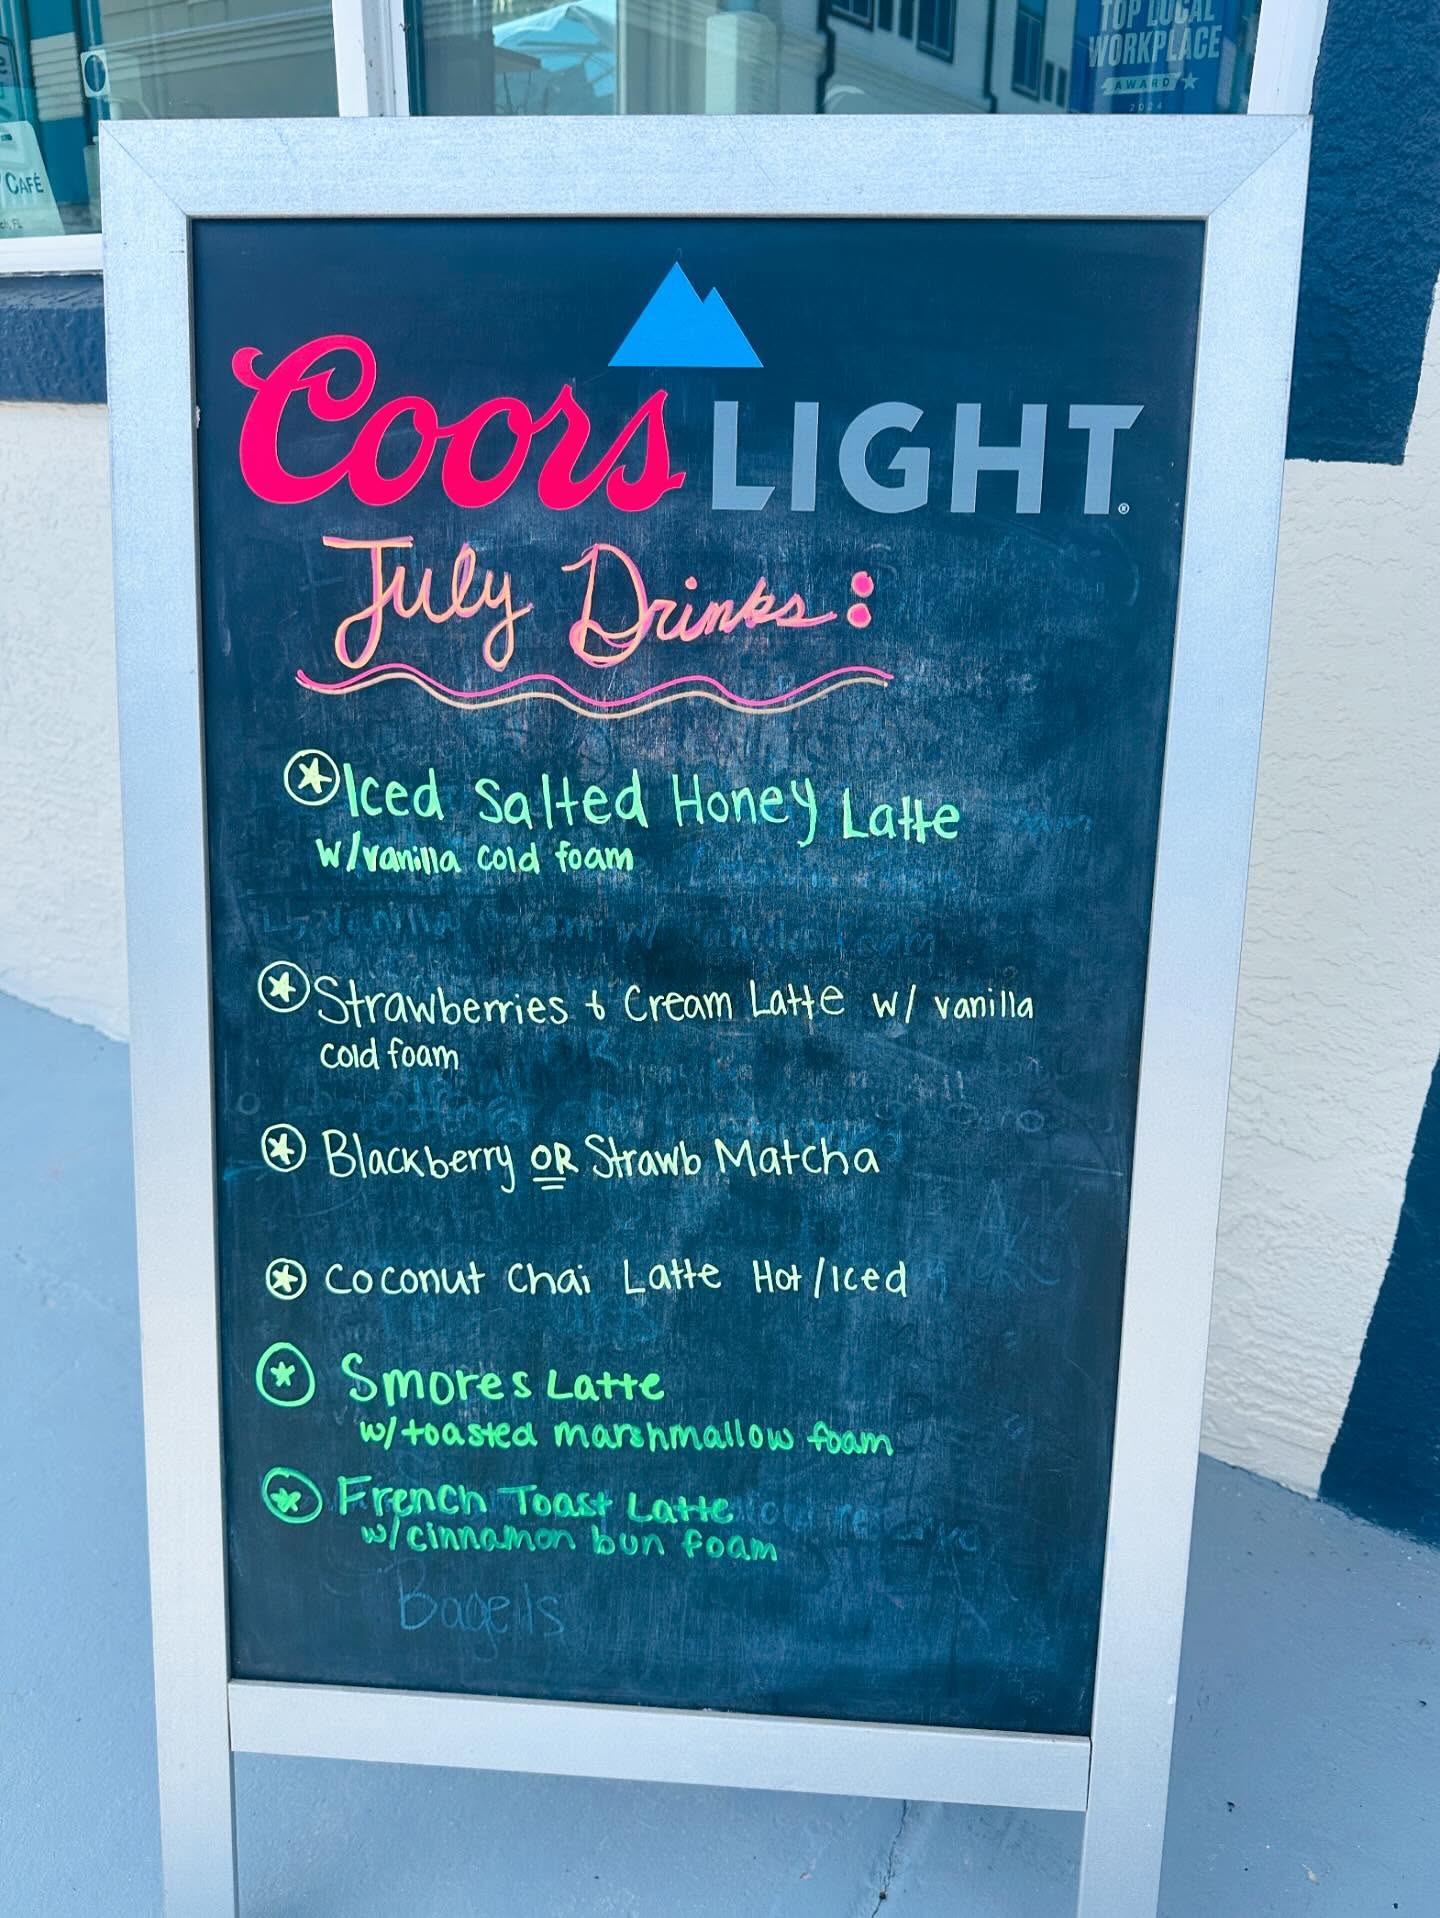 TOP LOCAL
WORKPLACE
AWARD
2024
CAFÉ
FL
Coors LIGHT®
July Drinks:
Iced Salted Honey Latte
w/vanilla cold foam
Strawberries & Cream Latte w/ vanilla
cold foam
Blackberry OR Strawb Matcha
Coconut Chai Latte Hot/Iced
Smores Latte
w/toasted marshmallow foam
French Toast Latte
w/cinnamon bun foam
Bagels